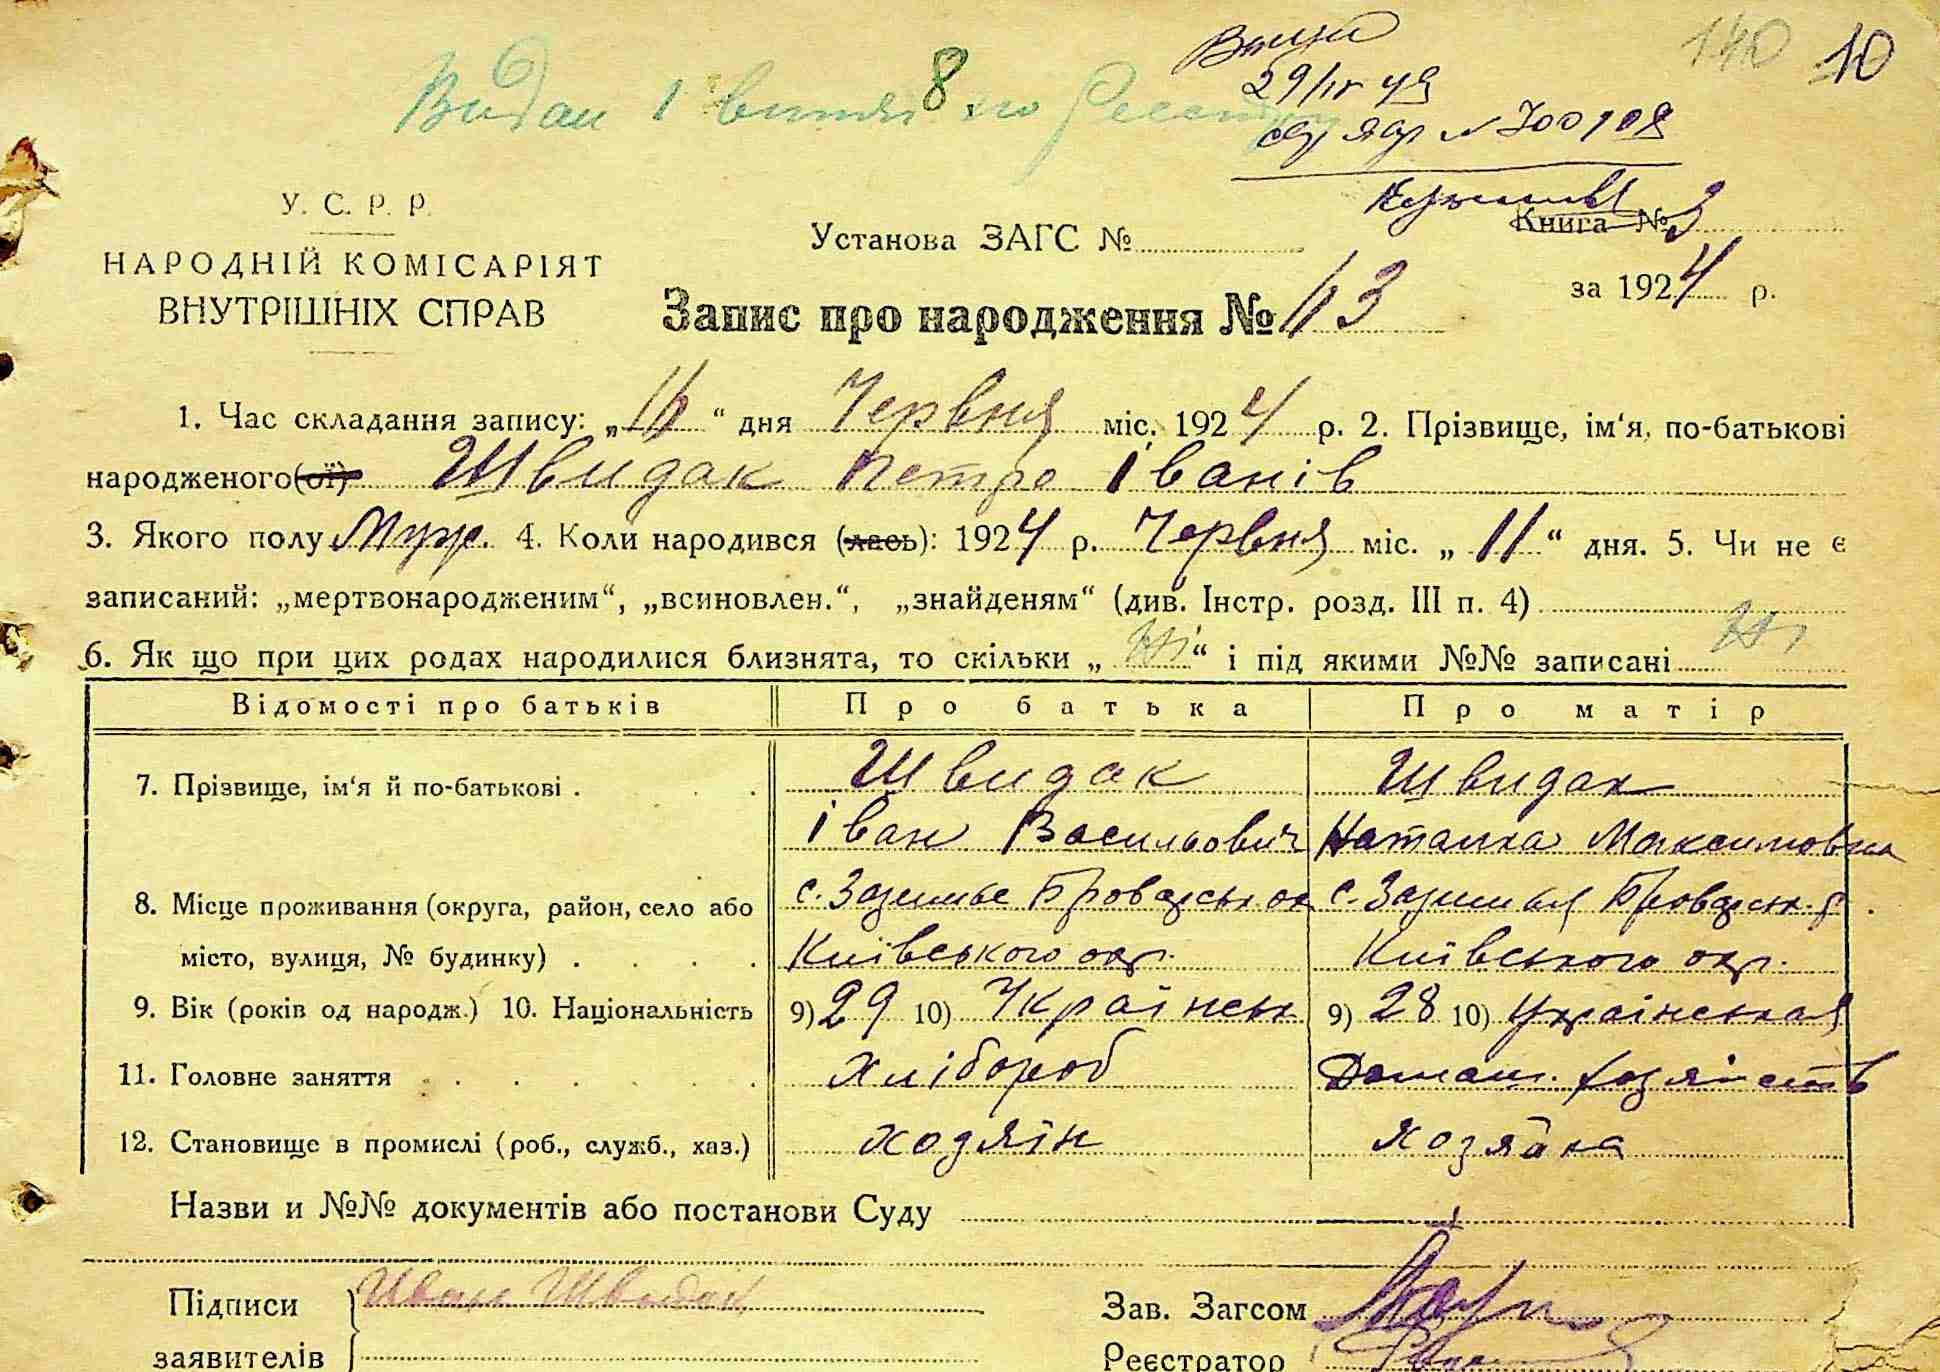 140 10
Видан 1 витяг 8 по Реестр
29/IV 49
№ 700109
У. С. Р. Р.
НАРОДНІЙ КОМІСАРІЯТ
ВНУТРІШНІХ СПРАВ
Установа ЗАГС №
Книга № 3
за 1924 р.
Запис про народження № 63
1. Час складання запису: „16“ дня Червня міс. 1924 р. 2. Прізвище, ім‘я, по-батькові
народженого(ої) Швидак Петро Іванів
3. Якого полу Муж. 4. Коли народився (лась): 1924 р. Червня міс. „11“ дня. 5. Чи не є
записаний: „мертвонародженим“, „всиновлен.“, „знайденям“ (див. Інстр. розд. III п. 4)
6. Як що при цих родах народилися близнята, то скільки „Ні“ і під якими №№ записані Ні
Відомості про батьків Про батька Про матір
7. Прізвище, ім‘я й по-батькові . Швидак Швидак
Іван Васильович Наталка Максимовна
8. Місце проживання (округа, район, село або с. Зазимье Броварськ с. Зазимья Броварськ. р.
місто, вулиця, № будинку) Київського окр. Київського окр.
9. Вік (років од народж.) 10. Національність 9) 29 10) Українськ 9) 28 10) Українськая
11. Головне заняття хлібороб Домаш. хозяйств
12. Становище в промислі (роб., служб., хаз.) хозяїн хозяйка
Назви и №№ документів або постанови Суду
Підписи Иван Швидак Зав. Загсом
заявителів Реєстратор